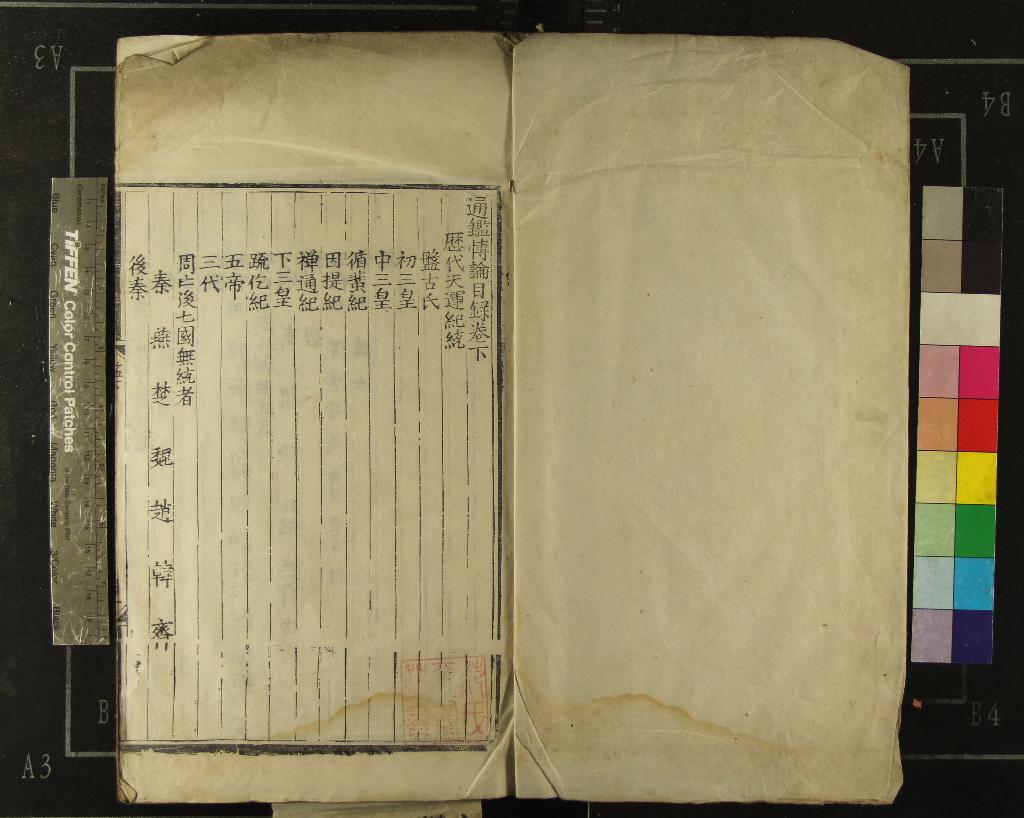 通鑑博論目録卷下
歷代天運紀統
盤古氏
初三皇
中三皇
循蜚紀
因提紀
禪通紀
下三皇
疏仡紀
五帝
三代
周亡後七國無統者
秦 燕 楚 魏 趙 韓 齊
後秦
TIFFEN Color Control Patches
A3
A4
B4
A3
B4